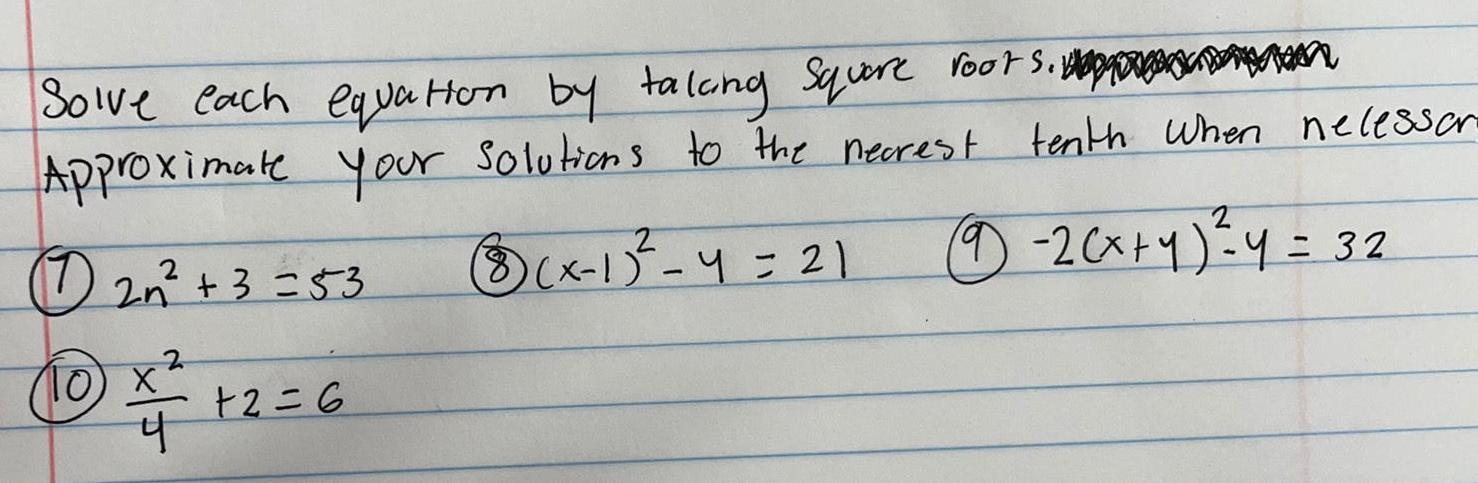 Solve each equation by taking square roots.
Approximate your solutions to the nearest tenth when necessar
⑦ 2n² + 3 = 53 ⑧ (x-1)² - 4 = 21 ⑨ -2(x+4)² - 4 = 32
⑩ x²/4 + 2 = 6